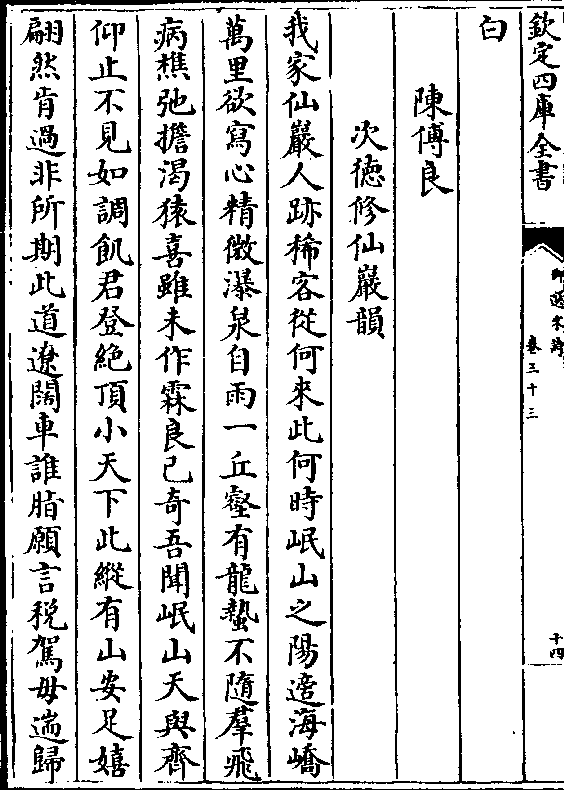 欽定四庫全書
御選宋詩
卷三十三
十四
白
陳傅良
次德修仙巖韻
我家仙巖人跡稀客從何來此何時岷山之陽邉海嶠
萬里欲寫心精微瀑泉自雨一丘壑有龍蟄不隨羣飛
病樵弛擔渴猿喜雖未作霖良已奇吾聞岷山天與齊
仰止不見如調飢君登絶頂小天下此縱有山安足嬉
翩然肯過非所期此道遼闊車誰脂願言稅駕毋遄歸